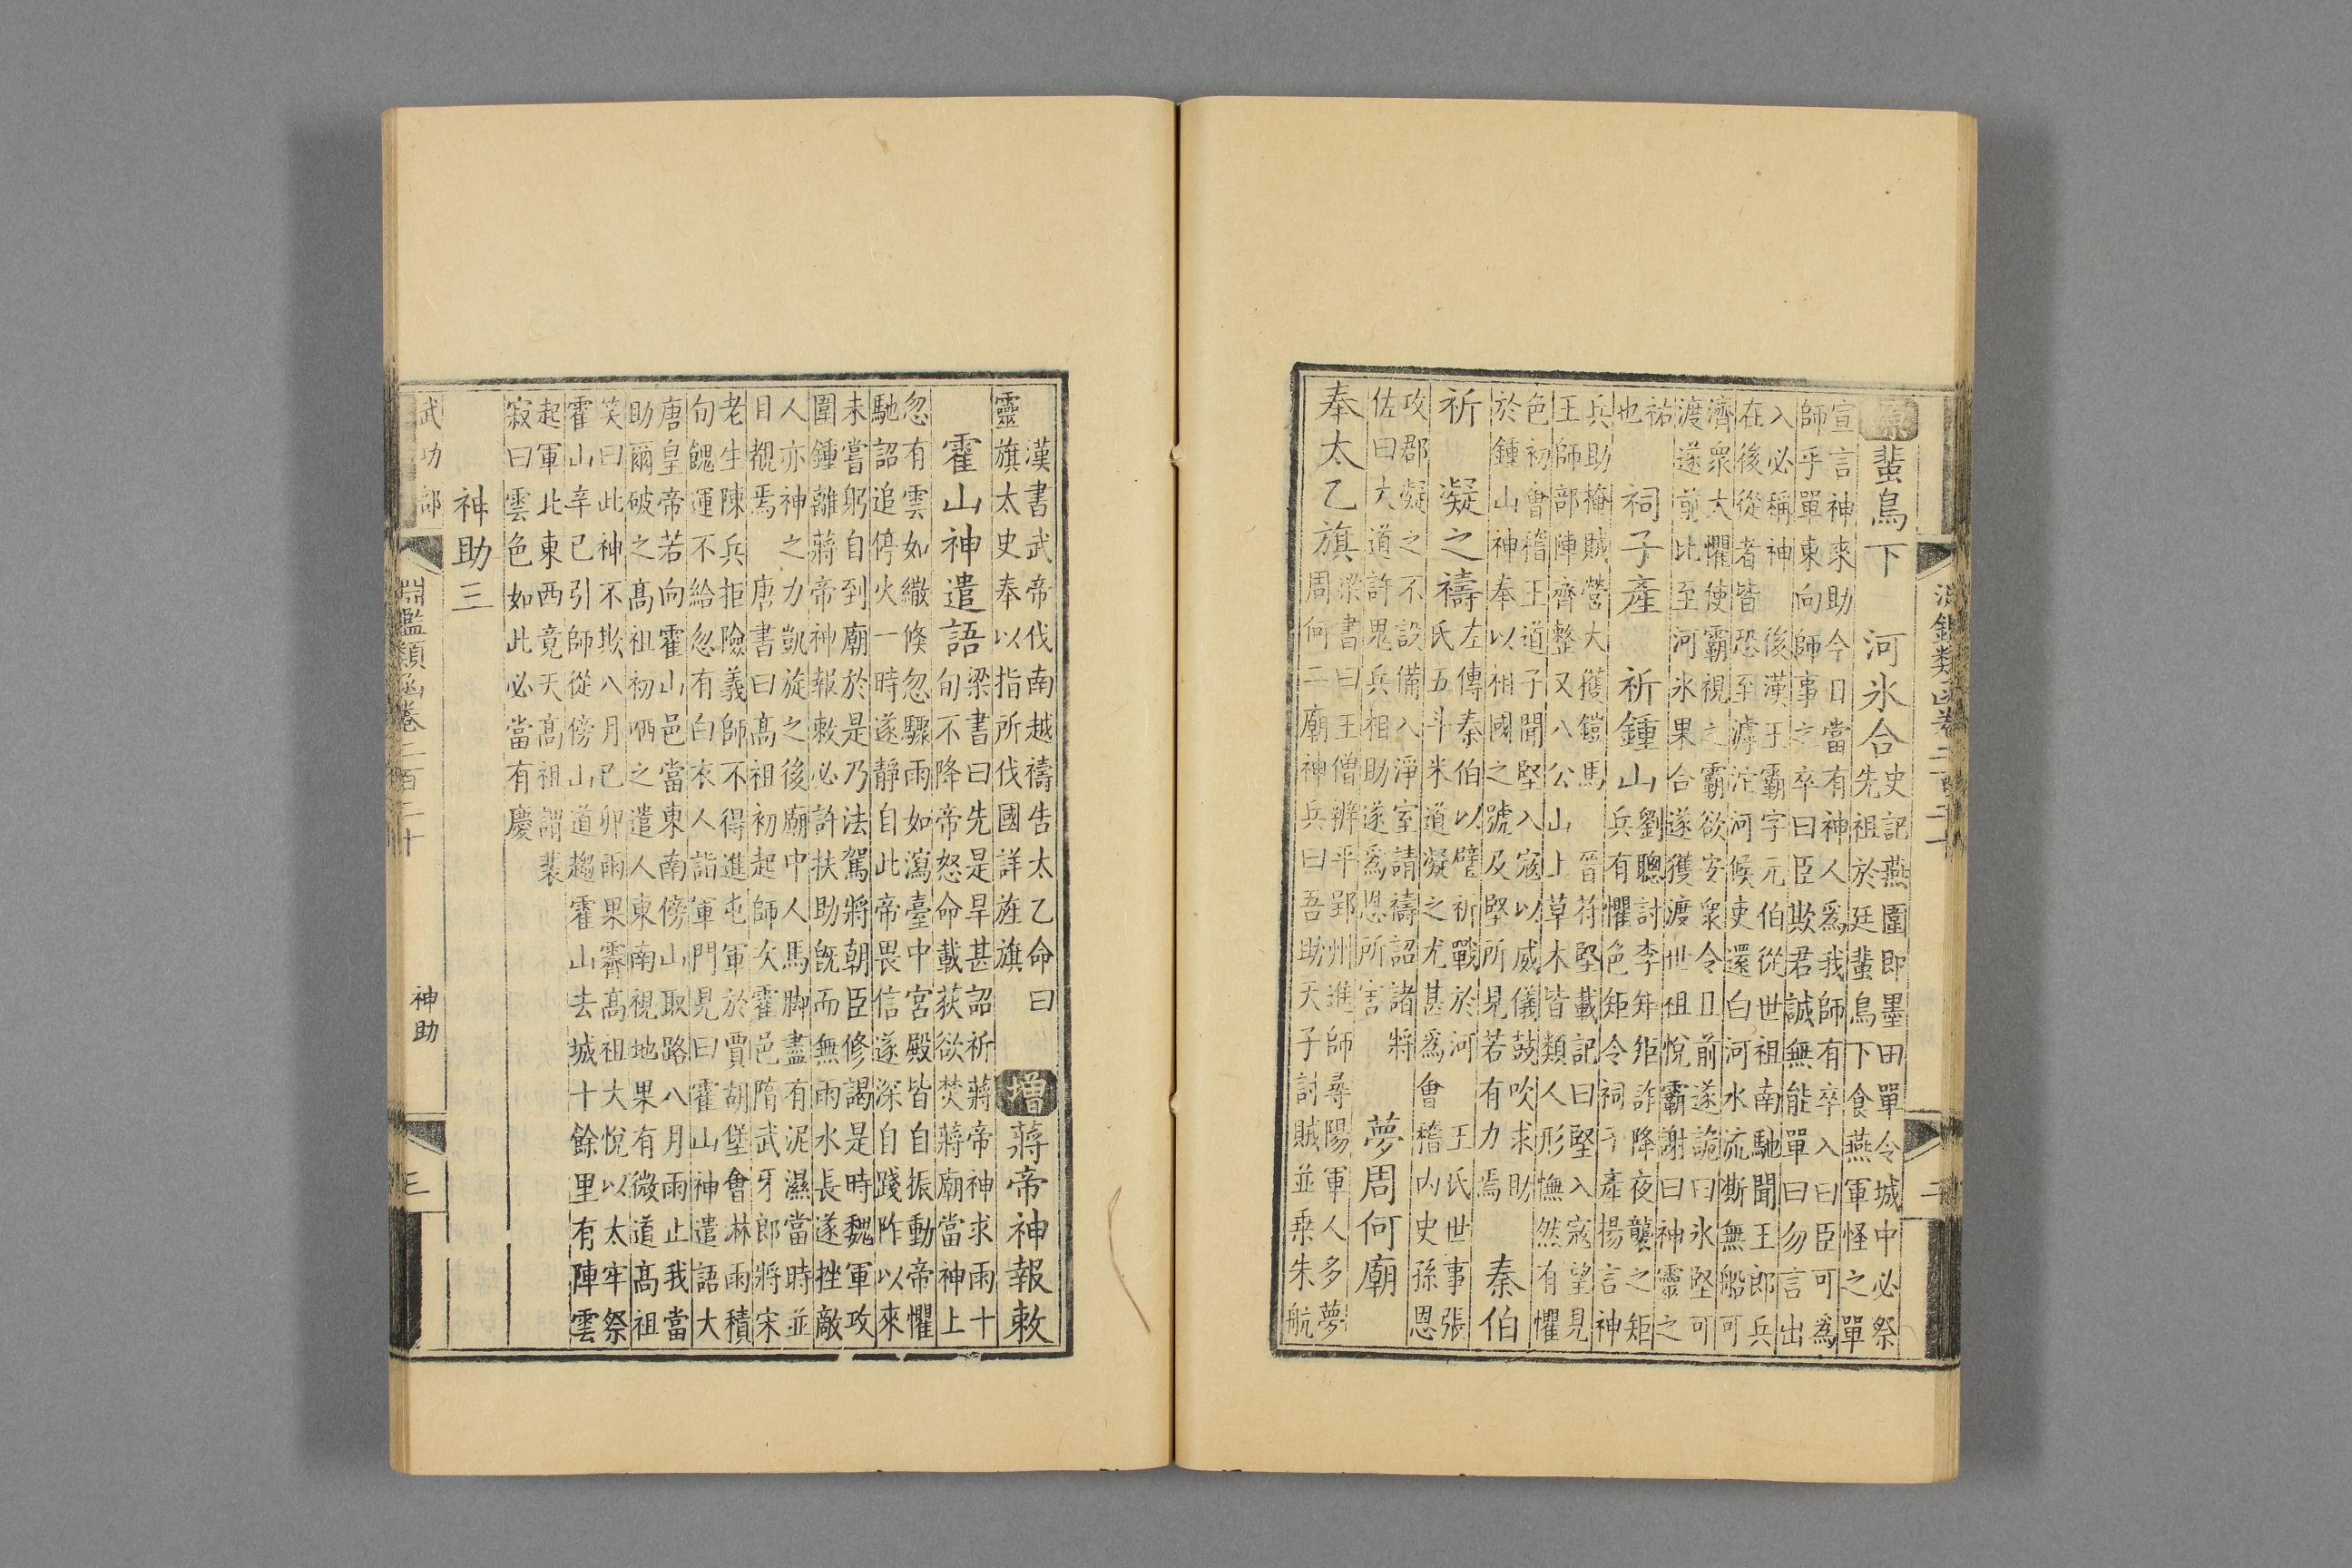 原 蜚鳥下 河氷合 史記燕圍即墨田單令城中必祭
先祖於廷蜚鳥下食燕軍怪之單
宣言神來助今日當有神人爲我師有卒入曰臣可爲
師乎單東向師事之卒曰臣欺君誠無能單曰勿言出
入必稱神 後漢王霸字元伯從世祖南馳聞王郎兵
在後從者皆恐至滹沱河候吏還白河水流澌無船可
濟衆大懼使霸視之霸欲安衆令且前遂詭曰氷堅可
渡遂前比至河氷果合遂獲渡世祖悅霸謝曰神靈之
祐
也
祠子產 祈鍾山 劉聰討李矩矩詐降夜襲之矩
兵有懼色矩令祠子產揚言神
兵助掩賊營大獲鎧馬 晉苻堅載記曰堅入寇望見
王師部陣齊整又八公山上草木皆類人形憮然有懼
色初會稽王道子聞堅入寇以威儀鼓吹求助
於鍾山神奉以相國之號及堅所見若有力焉
秦伯
祈 凝之禱 左傳秦伯以璧祈戰於河 王氏世事張
氏五斗米道凝之尤甚爲會稽內史孫恩
攻郡凝之不設備入淨室請禱詔諸將
佐曰大道許鬼兵相助遂爲恩所害
夢周何廟
奉太乙旗 梁書曰王僧辨平郢州進師尋陽軍人多夢
周何二廟神兵曰吾助天子討賊並乗朱航
淵鑑類函卷二百二十
二
漢書武帝伐南越禱告太乙命曰
靈旗太史奉以指所伐國詳旌旗
增 蔣帝神報敕
霍山神遣語 梁書曰先是旱甚詔祈蔣帝神求雨十
旬不降帝怒命載荻欲焚蔣廟當神上
忽有雲如繖倐忽驟雨如瀉臺中宮殿皆自振動帝懼
馳詔追停火一時遂靜自此帝畏信遂深自踐阼以來
未嘗躬自到廟於是乃法駕將朝臣修謁是時魏軍攻
圍鍾離蔣帝神報敕必許扶助旣而無雨水長遂挫敵
人亦神之力凱旋之後廟中人馬脚盡有泥濕當時並
目覩焉 唐書曰高祖初起師次霍邑隋武牙郎將宋
老生陳兵拒險義師不得進屯軍於賈胡堡會淋雨積
旬餽運不給忽有白衣人詣軍門見曰霍山神遣語大
唐皇帝若向霍山邑當東南傍山取路八月雨止我當
助爾破之高祖初哂之遣人東南視地果有微道高祖
笑曰此神不欺八月己卯雨果霽高祖大悅以太牢祭
霍山辛巳引師從傍山道趨霍山去城十餘里有陣雲
起軍北東西竟天高祖謂裴
寂曰雲色如此必當有慶
神助三
武功部
淵鑑類函卷二百二十
神助
三